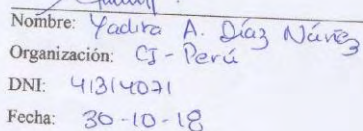 Nombre: Yadira A. Díaz Núñez
Organización: CJ - Perú
DNI: 41314071
Fecha: 30-10-18